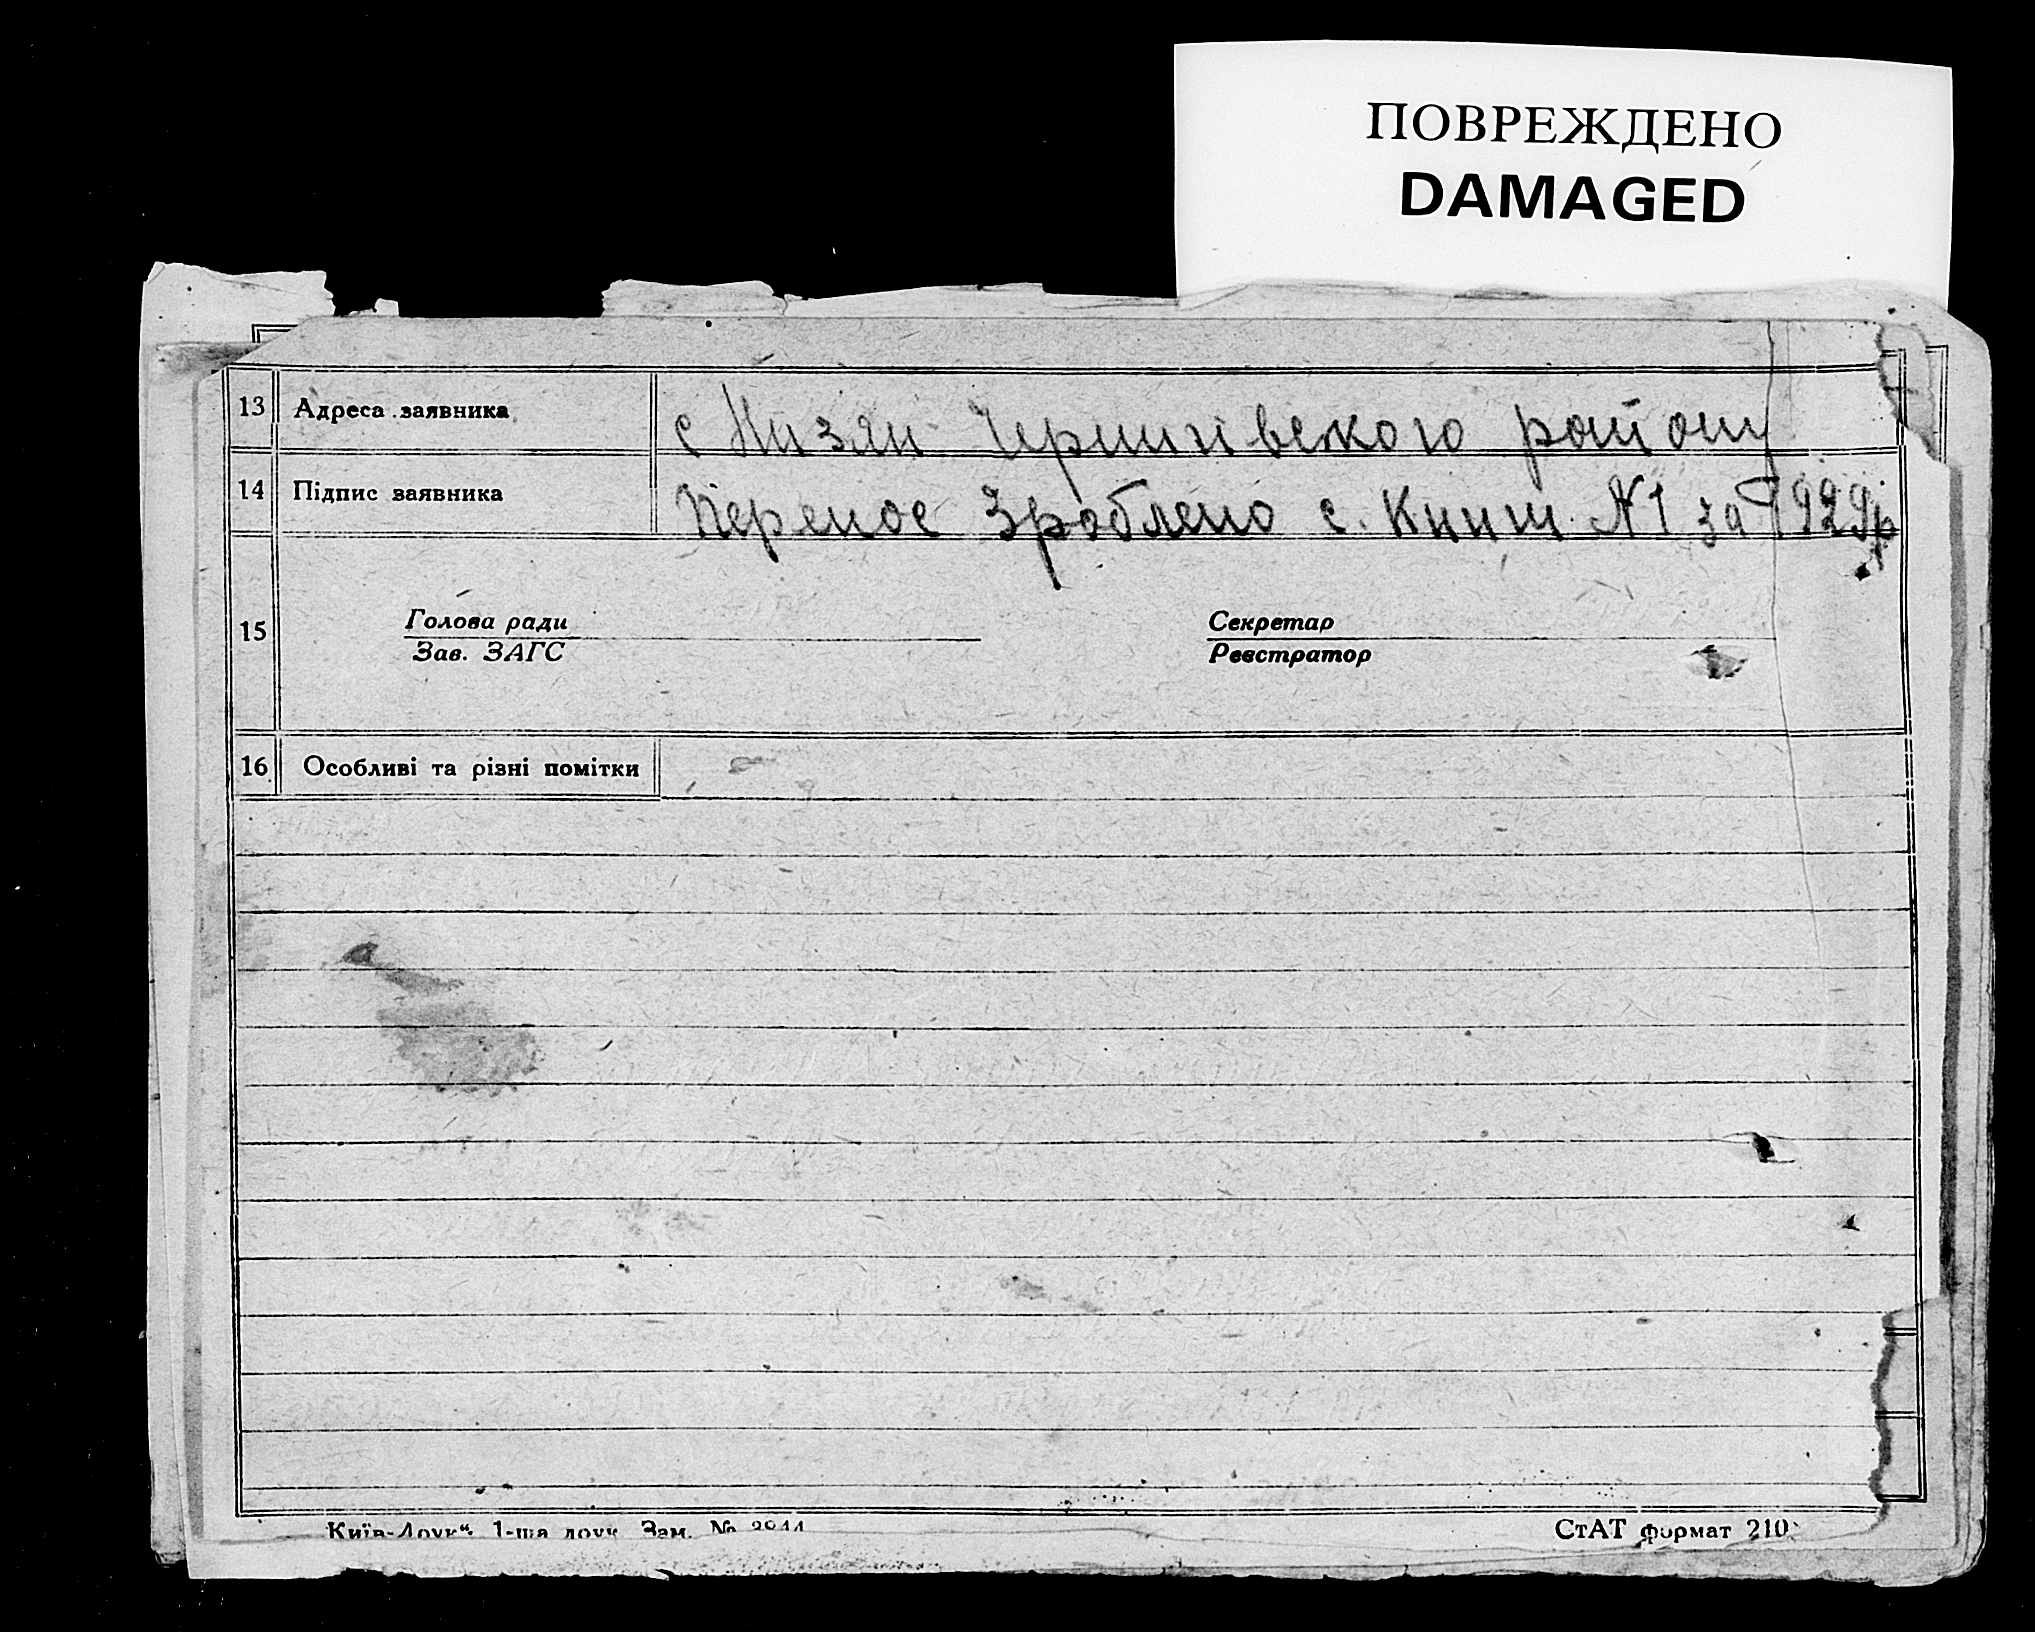 ПОВРЕЖДЕНО
DAMAGED
13 Адреса заявника с Низян Чернигівського району
14 Підпис заявника Перенос Зроблено с. Книги №1 за 1929р
15 Голова ради Секретар
Зав. ЗАГС Реєстратор
16 Особливі та різні помітки
Київ-Друк“. 1-ша друк. Зам. № СтАТ формат 210